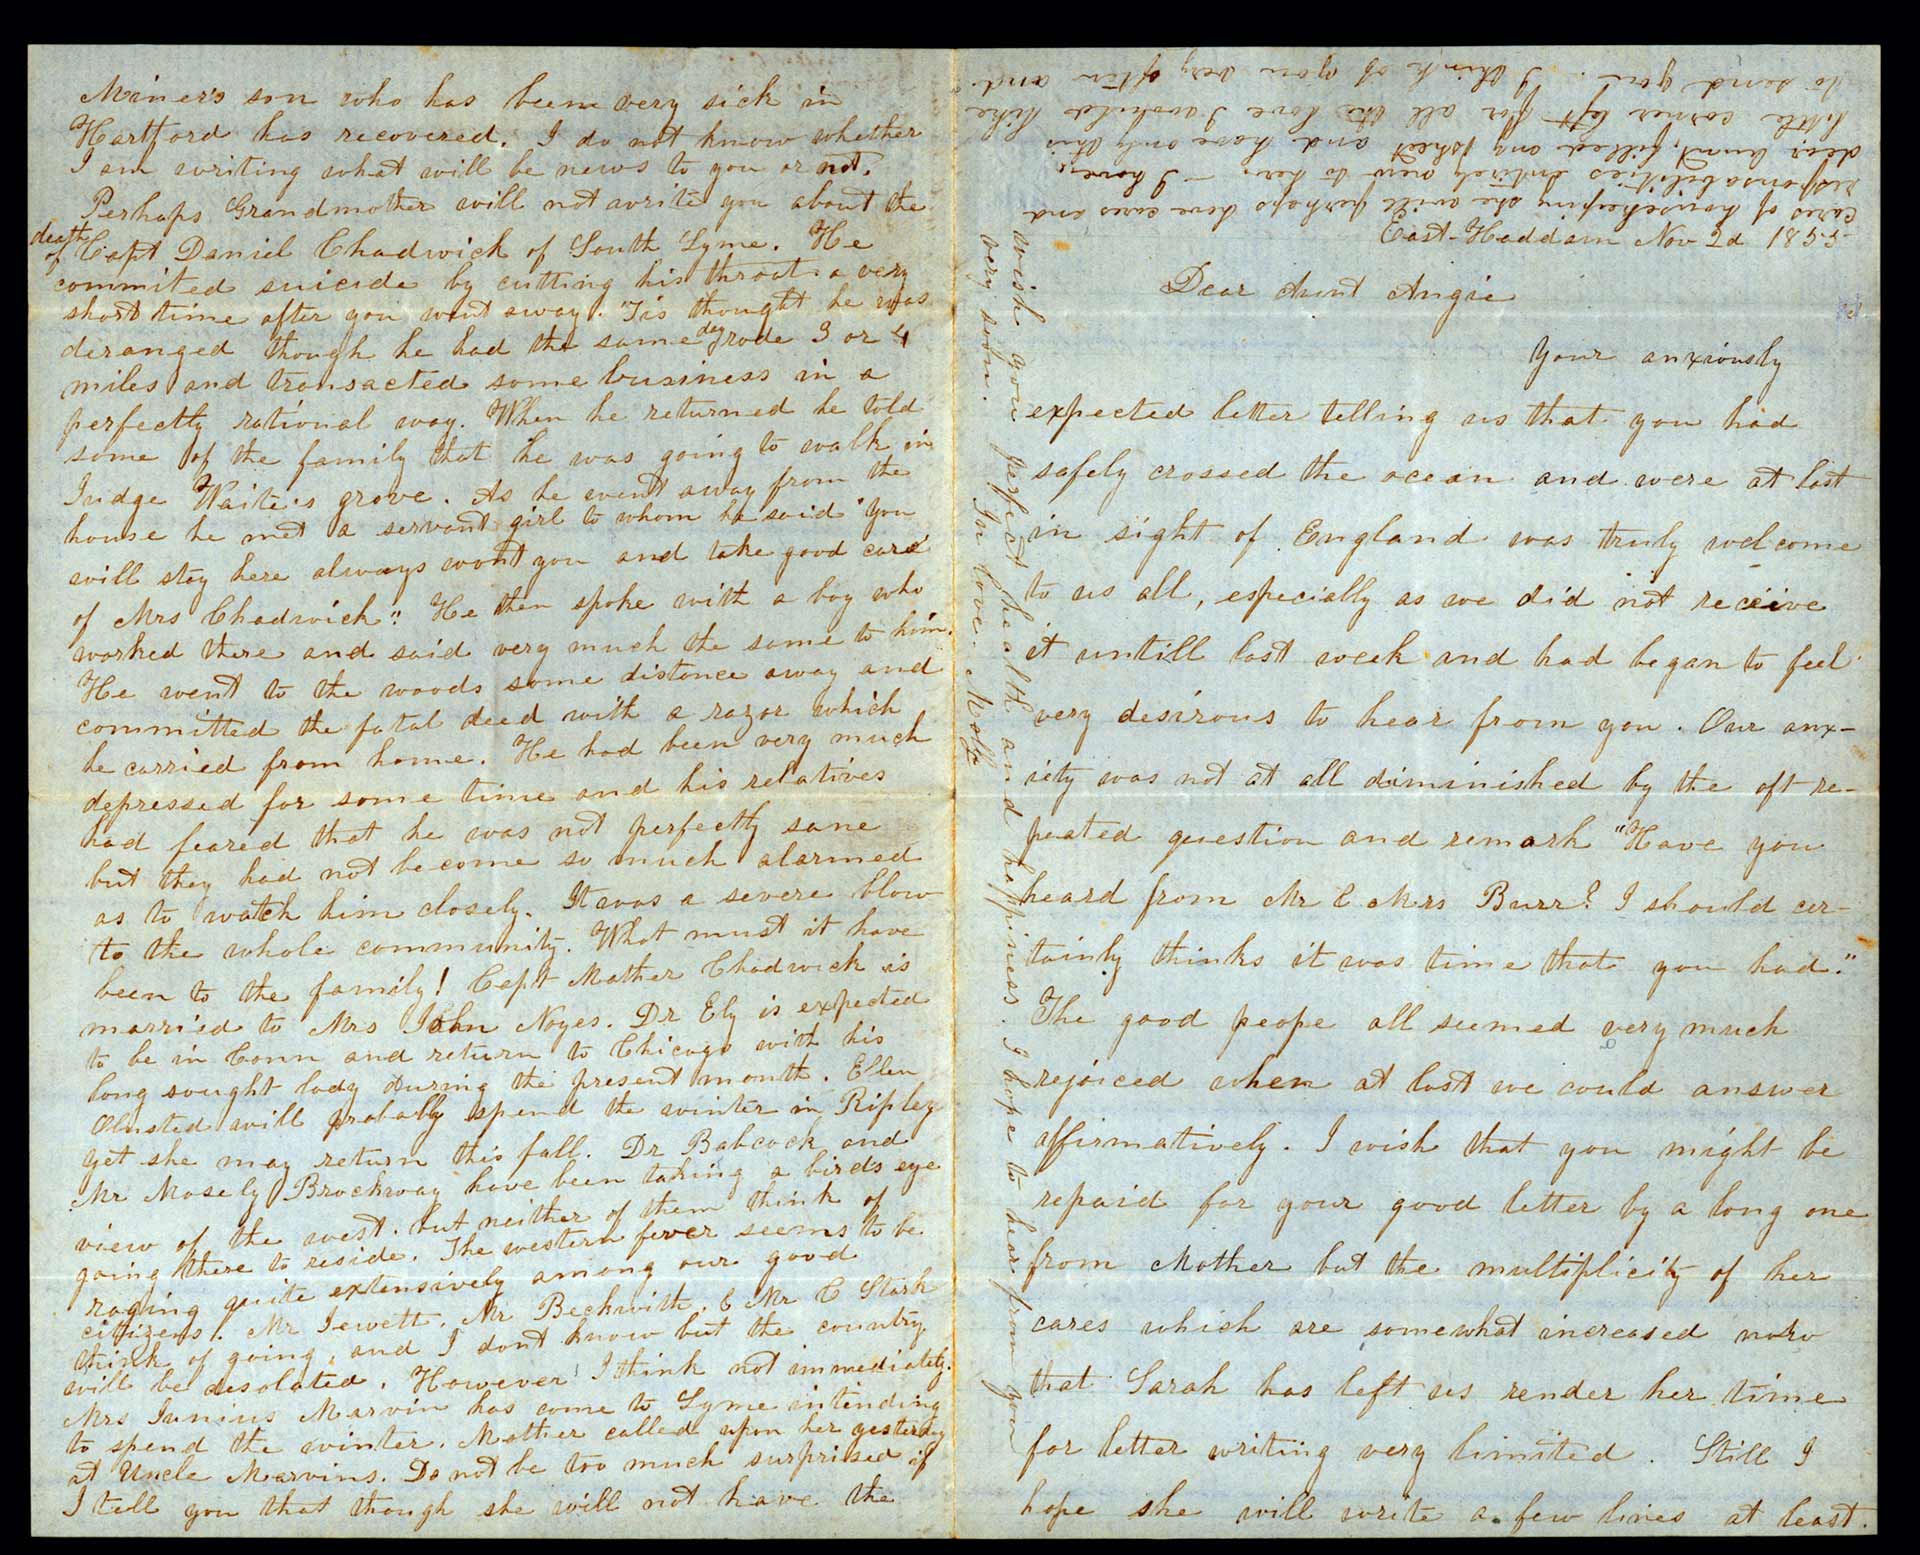 East-Haddam Nov 2d 1855-
Dear Aunt Angie
Your anxiously
expected letter telling us that you had
safely crossed the ocean and were at last
in sight of England was truly welcome
to us all, especially as we did not receive
it untill last week and had began to feel
very desirous to hear from you. Our anx-
iety was not at all diminished by the oft re-
peated question and remark "Have you
heard from Mr & Mrs Burr? I should cer-
tainly thinks it was time that you had."
The good peope all seemed very much
rejoiced when at last we could answer
affirmatively. I wish that you might be
repaid for your good letter by a long one
from Mother but the multiplicity of her
cares which are somewhat increased now
that Sarah has left us render her time
for letter writing very limited. Still I
hope she will write a few lines at least.
Miner's son who has been very sick in
Hartford has recovered. I do not know whether
I am writing what will be news to you or not.
Perhaps Grandmother will not write you about the
death
of Capt Daniel Chadwick of South Lyme. He
commited suicide by cutting his throat a very
short time after you went away. 'Tis thought he was
deranged though he had the same day rode 3 or 4
miles and transacted some business in a
perfectly rational way. When he returned he told
some of the family that he was going to walk in
Judge Waite's grove. As he went away from the
house he met a servant girl to whom he said "You
will stay here always wont you and take good care
of Mrs Chadwick". He then spoke with a boy who
worked there and said very much the same to him.
He went to the woods some distance away and
committed the fatal deed with a razor which
he carried from home. He had been very much
depressed for some time and his relatives
had feared that he was not perfectly sane
but they had not become so much alarmed
as to watch him closely. It was a severe blow
to the whole community. What must it have
been to the family! Capt Mather Chadwick is
married to Mrs John Noyes. Dr Ely is expected
to be in Conn and return to Chicago with his
long sought lady during the present month. Ellen
Olmsted will probally spend the winter in Ripley
yet she may return this fall. Dr Babcock and
Mr Mosely Brockway have been taking a birds eye
view of the west. but neither of them think of
going there to reside. The western fever seems to be
raging quite extensively among our good
citizens. Mr Jewett, Mr Beckwith, & Mr C Stark
think of going, and I dont know but the country
will be desolated. However I think not immediately.
Mrs Junius Marvin has come to Lyme intending
to spend the winter. Mother called upon her yesterday
at Uncle Marvins. Do not be too much surprised if
I tell you that though she will not have the
cares of housekeeping she will perhaps have cares and
responsabilities entirely new to her. - I have,
dear Aunt, filled my sheet and have only this
little corner left for all the love I would like
to send you. I think of you very often and
wish you perfect health and happiness. I hope to hear from you
very soon. In love. Molly